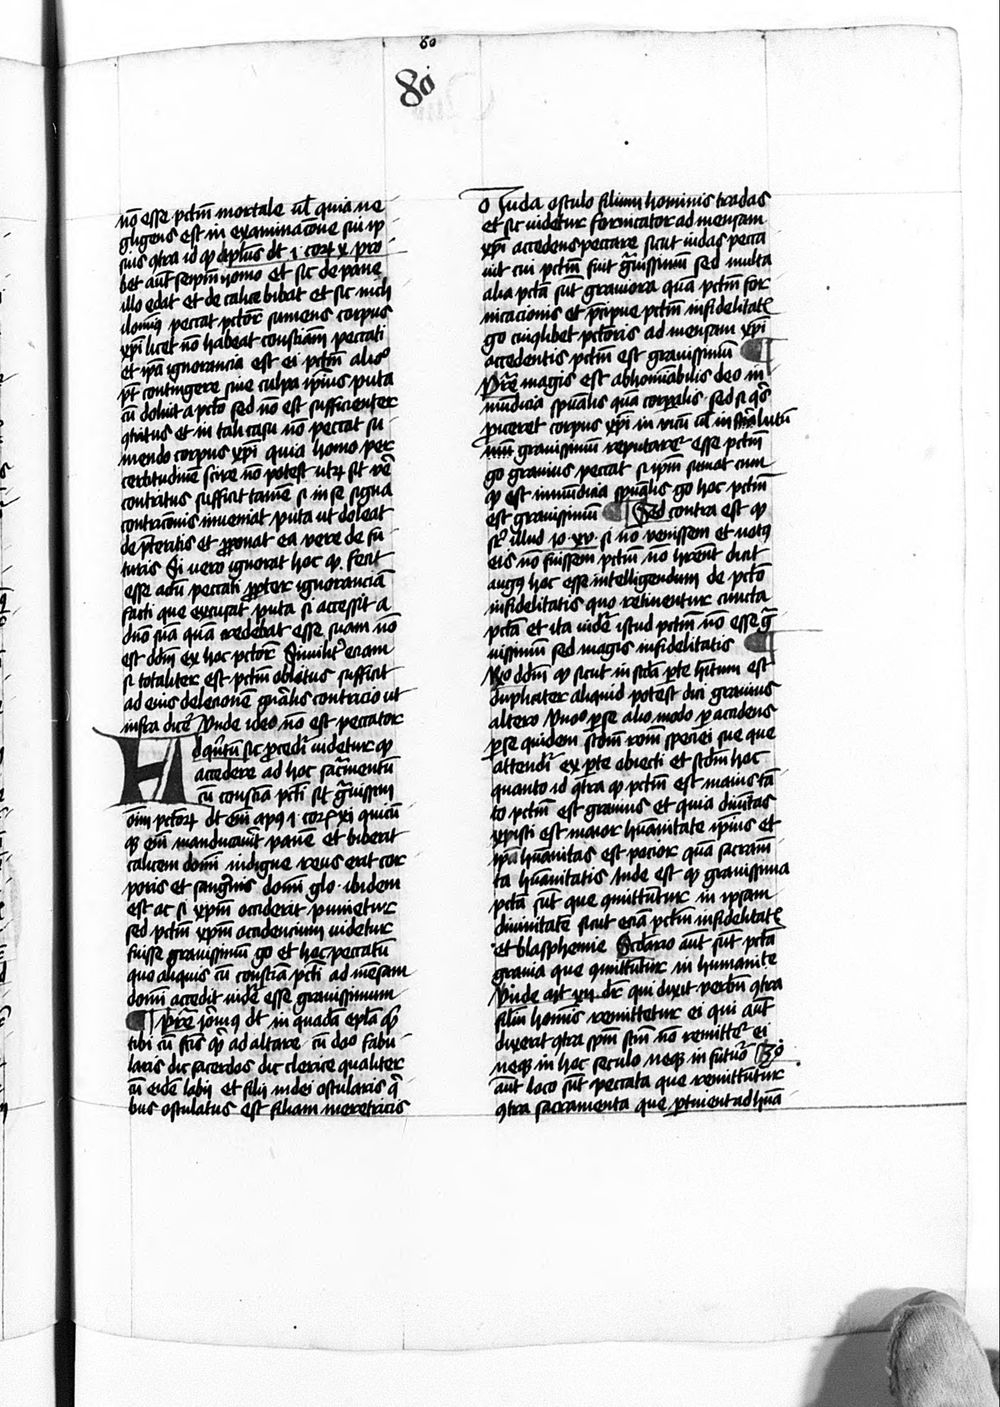 80
80
nō esse pctm̄ mortale ul̄ quia ne
gligens est in examinacōne sui ip
sius 9tra id qd apl̄us dt 1 cor x pro
bet aut̄ seipm̄ homo et sic de pane
illo edat et de calice bibat et sic nich
ilomin9 peccat pctōr sumens corpus
xp̄i licet nō habeat consciām peccati
et ip̄a ignorancia est ei pctm̄ alio9
pt̄ contingere sine culpa ip̄ius puta
cū doluit a pctō sed nō est sufficienter
9tritus et in tali casu nō peccat su
mendo corpus xp̄i quia homo per
certitudinē scire nō potest utrū sit vē
contritus sufficit tamē si in se signa
contricionis inueniat puta ut doleat
de pt̄eritis et p̄ponat ca uere de fu
turis Si uero ignorat hoc qd fecit
esse actū peccati p̄pter ignoranciā
facti que excusat puta si accessit a
d nō suā quā credebat esse suam nō
est dd̄m ex hoc pctōr Similit̄ eciam
si totaliter est pctm̄ oblitus sufficit
ad eius delecionē gn̄alis contricio ut
infra dicet̄ Vnde ideo nō est peccator
Ad qrtū sic p̄cedit̄ uidetur qd
accedere ad hoc sacr̄mentū
cū consciā pcti sit gr̄uissim
oīm pctōrū dt eīm apls 1 cor xi quicū
q3 eīm manducauit panē et biberit
calicem domī indigne reus erit cor
poris et sangi̇nis domī glo ibidem
est ac si xpm̄ occiderit punietur
sed pctm̄ xpm̄ occidencium uidetur
fuisse grauissimū go et hoc peccatū
que aliquis cū consciā pcti ad mēsam
domī accedit uidet̄ esse grauissimum
¶ Pret̄ ieroim9 dt in quadā epl̄a qd
tibi cū feis q ad altare cū deo fabu
laris dic sacerdos dic clerice qualiter
cū eisdē labijs et filij m dei oscularis q̄
bus osculatus est filiam meretricis
o Iuda osculo filium hominis tradas
et sic uidetur fornicator ad mensam
xp̄i accedens peccare sicut iudas pecca
uit cui pctm̄ fuit gr̄uissimū sed multa
alia pctā sūt grauiora quā pctm̄ for
nicacionis et p̄cipue pctm̄ infidelitat̄
go cuiuslibet pctōris ad mensam xp̄i
accedentis pctm̄ est grauissimū ¶
Pret̄ magis est abhomiabilis deo in
mūdicia spūalis quā corpalis sed si q̄s
p̄iceret corpus xp̄i in
mū grauissimū reputaret̄ esse pctm̄
go grauius peccat si ip̄m sumat cum
qd est inmūdicia spūalis go hoc pctm̄
est grauissimū ¶ Sed contra est qd
sr̄ illud io xv si nō uenissem et locut9
eis nō fuissem pctm̄ nō hrent dicit
aug9 hoc esse intelligendum de pctō
infidelitatis quo retinentur cuncta
pctā et ita uidet̄ istud pctm̄ nō esse gr̄
uissimū sed magis infidelitatis ¶
Rō dd̄m qd sicut in scda pte hitum est
dupliciter aliquid potest dici grauius
altero vno9 p se alio modo p accidens
p se quidem scdm rōm speciei sue que
attendit̄ ex pte obiecti et scdm hoc
quanto id 9tra qd pctm̄ est maius tā
to pctm̄ est grauius et quia diuītas
xpisti est maior hūanitate ip̄ius et
ip̄a hūanitas est pocior quā sacram̄
ta hūanitatis Inde est qd grauissima
pctā sūt que 9mittūtur in ipsam
diuinitatē sicut eciā pctm̄ infidelitat̄
et blasphemie Scdario aut̄ sūt pctā
grauia que 9mittūtur in humanite
Vnde mt̄ xii dr̄ qui dixit uerbū 9tra
filiū homīs remittetur ei qui aut̄
dixerit 9tra spm̄ scm̄ nō remittet̄ ei
neq3 in hoc seculo neq3 in futūo 3o
aut̄ loco sūt peccata que remittūtur
9tra sacramenta que ptinent ad hūa